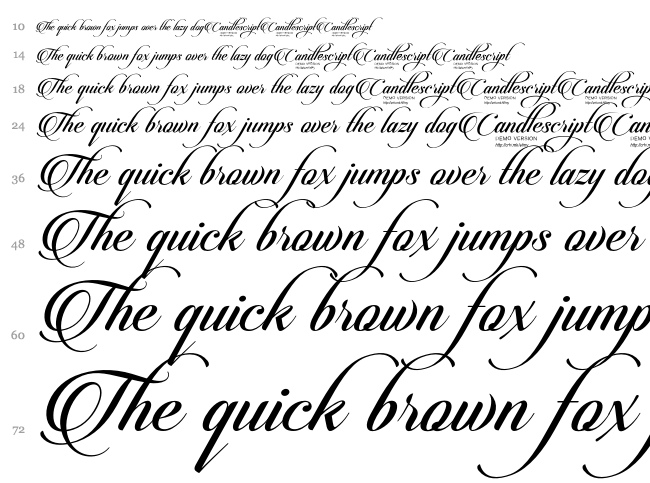 10 The quick brown fox jumps over the lazy dogCandlescriptCandlescriptCandlescript
14 The quick brown fox jumps over the lazy dogCandlescriptCandlescriptCandlescript
DEMO VERSION DEMO VERSION DEMO VERSION
18 The quick brown fox jumps over the lazy dogCandlescriptCandlescript
DEMO VERSION DEMO VERSION
24 The quick brown fox jumps over the lazy dogCandlescriptCan
DEMO VERSION DEMO
36 The quick brown fox jumps over the lazy dog
48 The quick brown fox jumps over
60 The quick brown fox jump
72 The quick brown fox